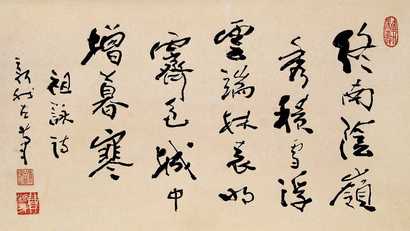 終南陰嶺
秀積雪浮
雲端林表明
霽色城中
增暮寒
祖詠詩
新我左筆